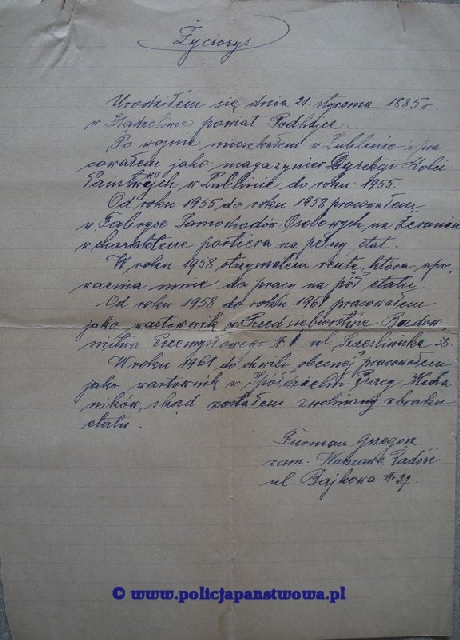 Życiorys
Urodziłem się dnia 22 stycznia 1885 r
w powiat Podhajce.
Po wojnie mieszkałem w Lublinie i pra
cowałem jako magazynier Dyrekcji Kolei
Państwowych w Lublinie do roku 1955.
Od roku 1955 do roku 1958 pracowałem
w Fabryce Samochodów Osobowych na Żeraniu
w charakterze portiera na pełny etat.
W roku 1958 otrzymałem rentę, która upo
ważnia mnie do pracy na pół etatu
Od roku 1958 do roku 1961 pracowałem
jako wartownik w Przedsiębiorstwie Budow
nictwa Nr 1 ul
W roku 1961 do chwili obecnej pracowałem
jako wartownik w Spółdzielni Pracy
skąd zostałem zwolniony z braku
etatu.
Furman Grzegorz
zam. Warszawa Radość
ul. Bajkowa Nr
© www.policjapanstwowa.pl